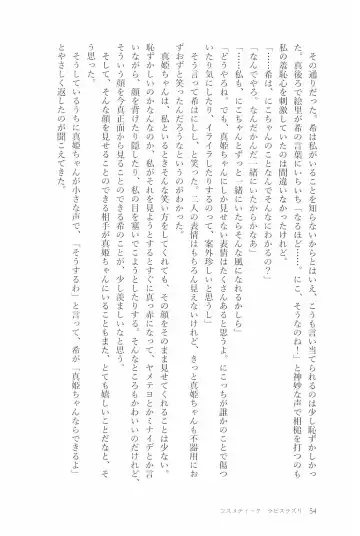 その通りだった。希は私がいることを知らないからとはいえ、こうも言い当てられるのは少し恥ずかしかっ
た。真後ろで絵里が希の言葉にいちいち「なるほど……。にこ、そうなのね！」と神妙な声で相槌を打つのも
私の羞恥心を刺激していたのは間違いなかったけれど。
「……希は、にこちゃんのことなんでそんなにわかるの？」
「なんでやろ。なんだかんだ一緒にいたからかなあ」
「……私も、にこちゃんとずっと一緒にいたらそんな風になれるかしら」
「どうやろね。でも、真姫ちゃんにしか見せない表情はたくさんあると思うよ。にこっちが誰かのことで傷つ
いたり気にしたり、イライラしたりするのって、案外珍しいと思うし」
そう言って希はにしし、と笑った。二人の表情はもちろん見えないけれど、きっと真姫ちゃんも不器用にお
ずおずと笑ったんだろうなというのがわかった。
真姫ちゃんは、私といるときそんな笑い方をしてくれても、なかなかその顔を見せてくれることは少ない。
恥ずかしいのかなんなのか、私がそれを見ようとするとすぐに真っ赤になって、ヤメテヨとかミナイデとか言
いながら、顔を背けたり隠したり、私の目を塞いでこようとしたりする。そんなところもかわいいのだけれど、
そういう顔を今真正面から見ることのできる希のことが、少し羨ましいなと思う。
そして、そんな顔を見せることのできる相手が真姫ちゃんにいることもまた、とても嬉しいことだなと、そ
う思った。
そうしているうちに真姫ちゃんが小さな声で、「そうするわ」と言って、希が、「真姫ちゃんならできるよ」
とやさしく返したのが聞こえてきた。
コスメティーク ラピスラズリ
54